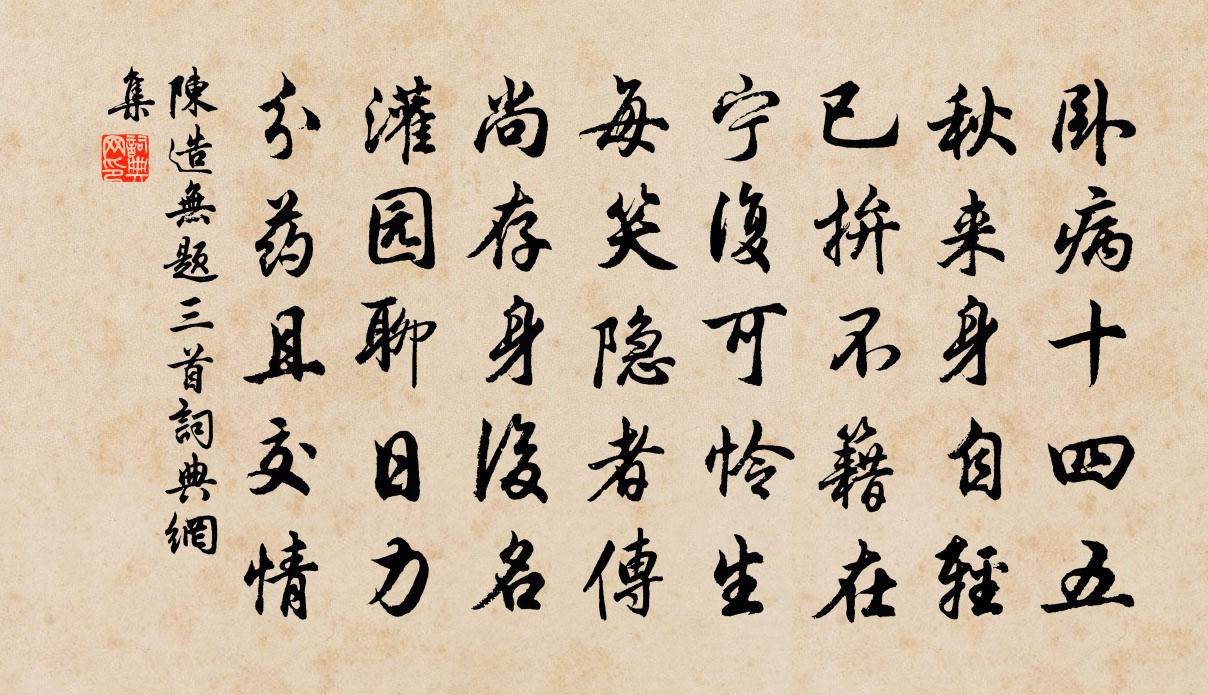 卧病十四五
秋来身自輕
已拚不籍在
宁復可怜生
每笑隐者傳
尚存身後名
灌园聊日力
分药且交情
陳造無题三首詞典網
集
詞典
网印